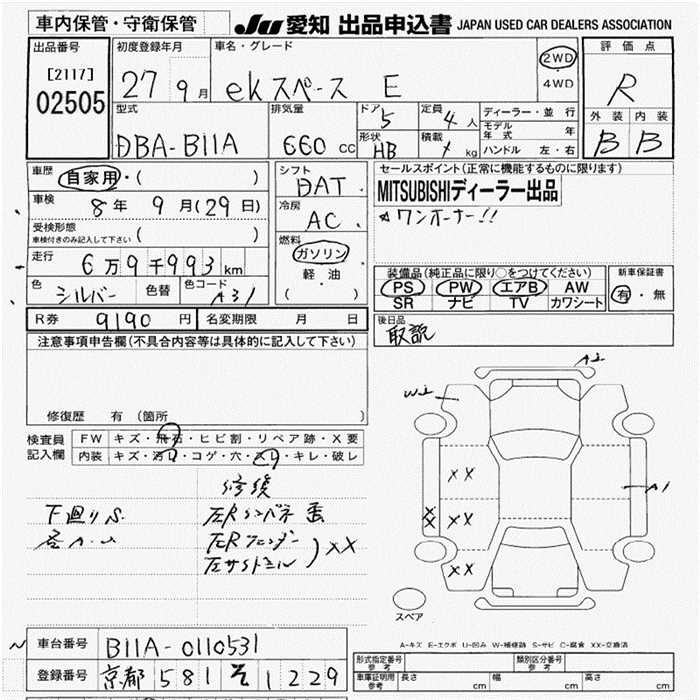 車内保管・守衛保管 JU 愛知 出品申込書 JAPAN USED CAR DEALERS ASSOCIATION
出品番号 初度登録年月 車名・グレード 評価点
[2117] 02505 27 9月 ekスペース E 2WD・4WD R
型式 排気量 ドア 5 定員 4人 ディーラー・並行 外装 内装
DBA-B11A 660cc 形状 HB 積載 kg モデル年式 年 B B
ハンドル 左・右
車歴 自家用・( ) シフト DAT セールスポイント(正常に機能するものに限ります)
車検 8年 9月(29日) 冷房 AC MITSUBISHIディーラー出品
受検形態 ( ) ☆ワンオーナー!!
車検付きのみ記入して下さい
走行 6万9千993km 燃料 ガソリン・軽・油 ( )
装備品(純正品に限り○をつけてください) 新車保証書
PS PW エアB AW 有・無
SR ナビ TV カワシート
色 シルバー 色替 色コード A31
R券 9190円 名変期限 月 日 後日品
取説
注意事項申告欄(不具合内容等は具体的に記入して下さい)
修復歴 有(箇所 )
検査員記入欄 FW キズ・飛石・ヒビ割・リペア跡・X要
内装 キズ・汚れ・コゲ・穴・スレ・キレ・破レ
修復
下廻りS
左Rフェンダー
XX
A2
W2
XX
A1
XX
XX
XX
スペア
A-キズ E-エクボ U-凹み W-補修跡 S-サビ C-腐食 XX-交換済
車台番号 B11A-0110531
登録番号 京都 581 そ 1229
形式指定番号 参考 類別区分番号 参考
車庫証明用 参考 長さ cm 幅 cm 高さ cm